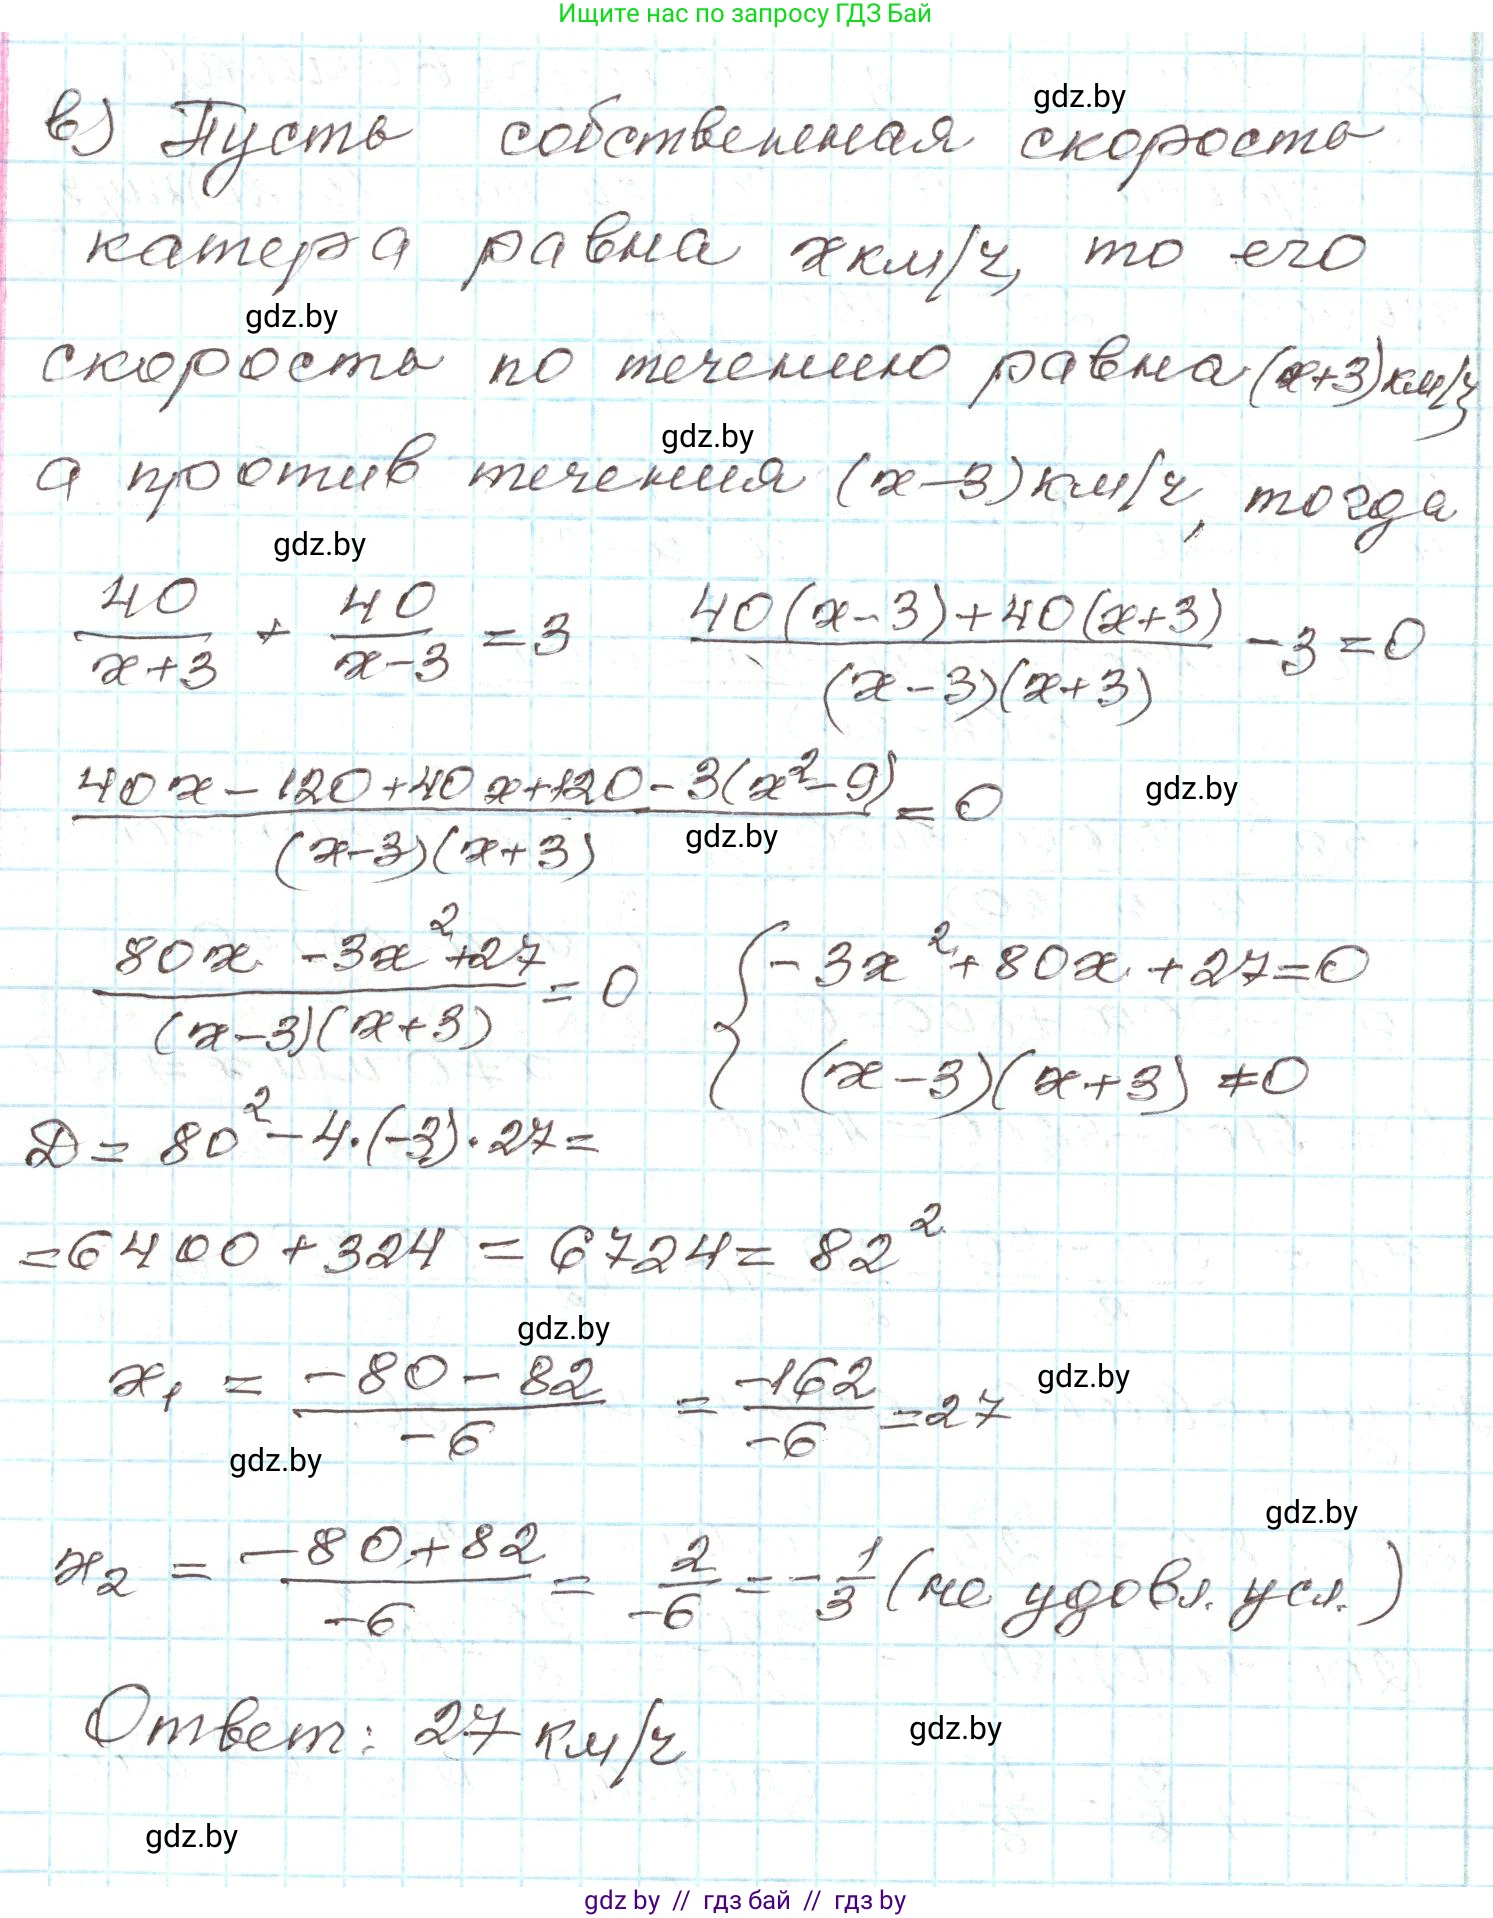 Ищите нас по запросу ГДЗ Бай
gdz.by
в) Пусть собственная скорость
катера равна x км/ч, то его
gdz.by
скорость по течению равна (x+3) км/ч,
gdz.by
а против течения (x-3) км/ч, тогда
gdz.by
40/(x+3) + 40/(x-3) = 3   (40(x-3)+40(x+3))/((x-3)(x+3)) - 3 = 0
(40x-120+40x+120-3(x²-9))/((x-3)(x+3)) = 0
gdz.by
gdz.by
(80x -3x²+27)/((x-3)(x+3)) = 0   { -3x²+80x+27=0
(x-3)(x+3) ≠ 0
Д = 80² - 4·(-3)·27 =
= 6400 + 324 = 6724 = 82²
gdz.by
x₁ = (-80-82)/(-6) = -162/-6 = 27
gdz.by
gdz.by
gdz.by
x₂ = (-80+82)/(-6) = 2/-6 = -1/3 (не удовл. усл.)
Ответ: 27 км/ч
gdz.by
gdz.by
gdz.by // гдз бай // гдз by